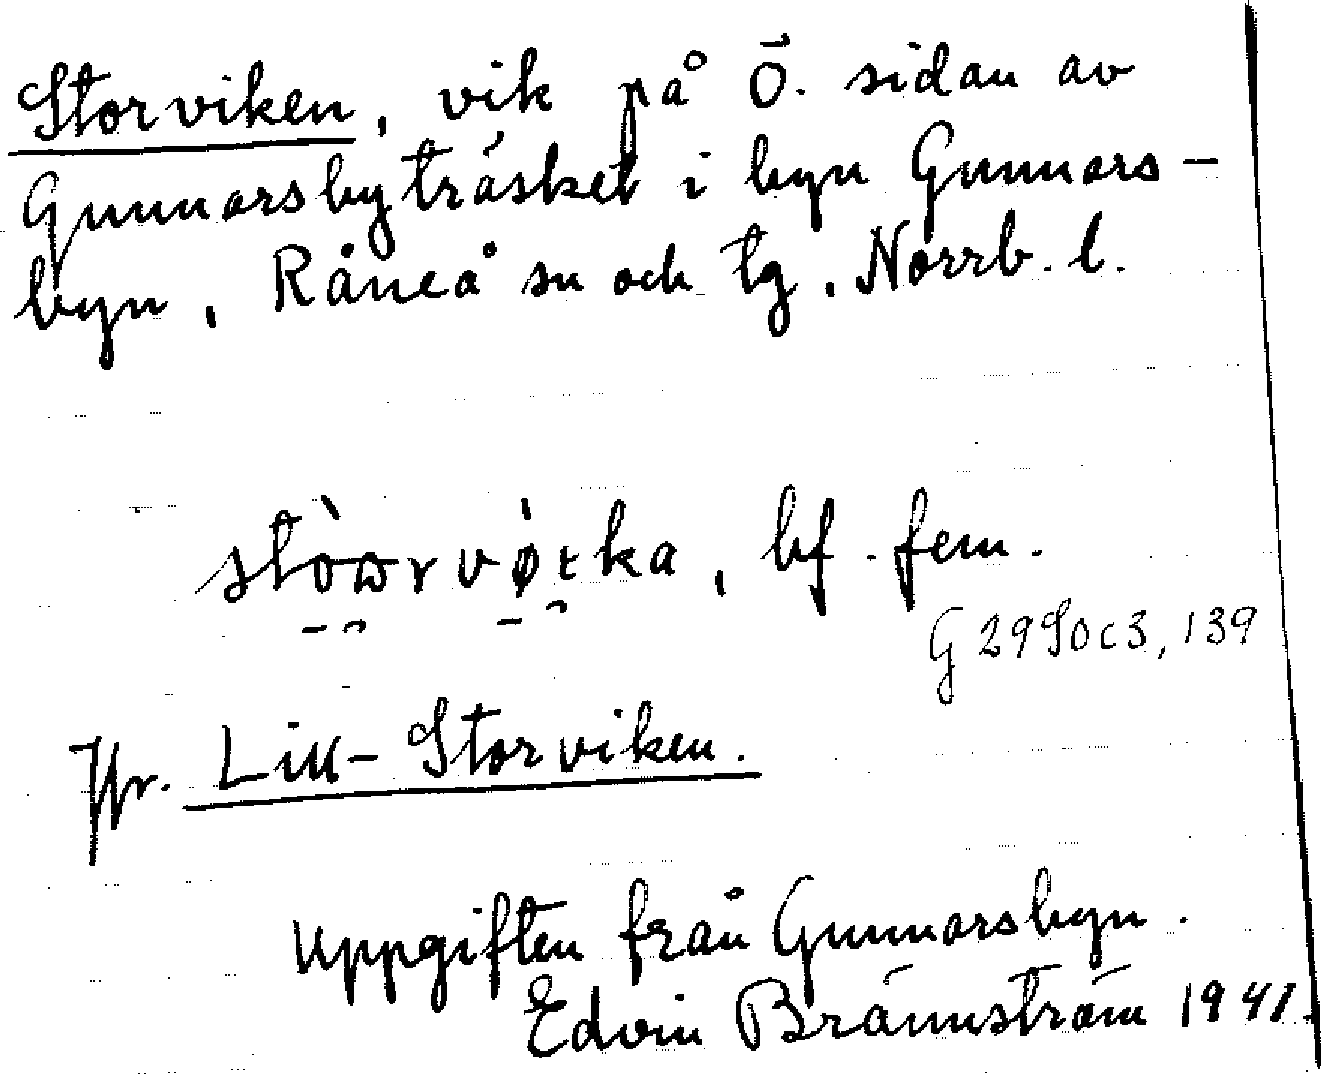 Storviken, vik på Ö. sidan av
Gunnarsbyträsket i byn Gunnars-
byn, Råneå sn och tg, Norrb. l.
bf. fem.
G 29 Soc 3, 139
Jfr. Lill-Storviken.
Uppgiften från Gunnarsbyn.
Edvin Brännström 1941.